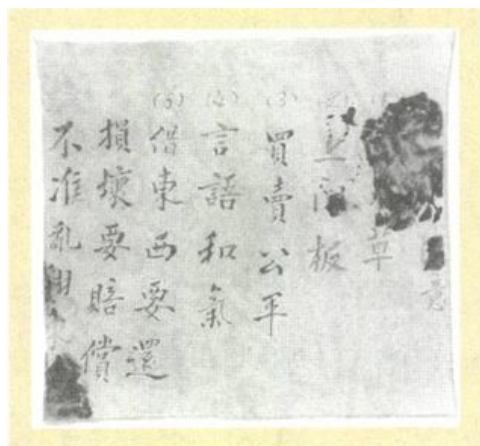 意
草
上 板
(3) 買賣公平
(4) 言語和氣
(5) 借東西要還
損壞要賠償
不准亂用